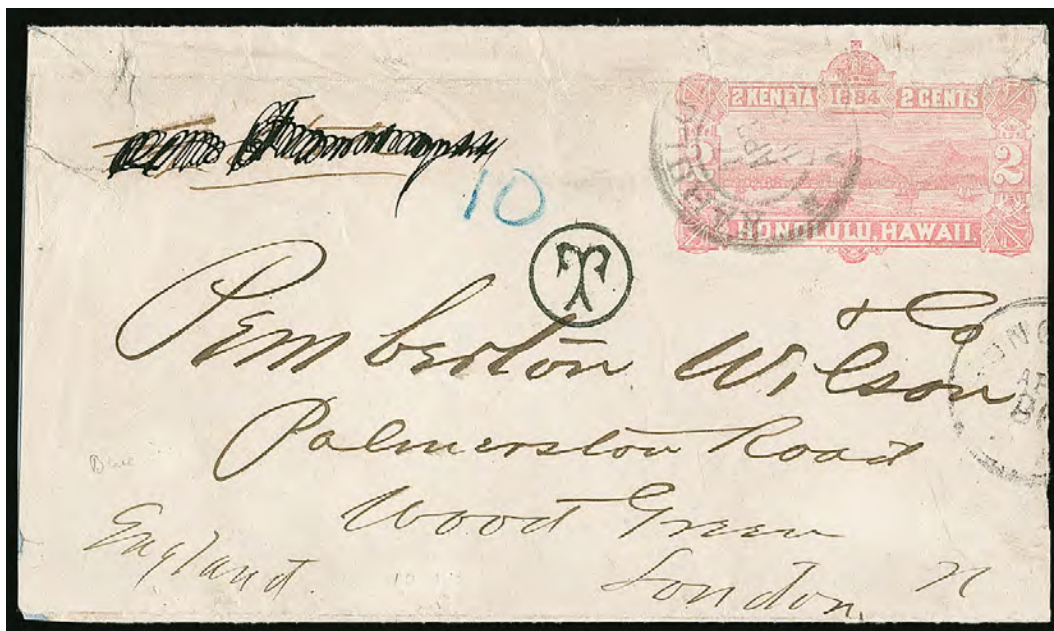 2 KENETA 1884 2 CENTS
2
HONOLULU, HAWAII
10
T
Pemberton Wilson & Co
Palmerston Road
Wood Green
London N
England